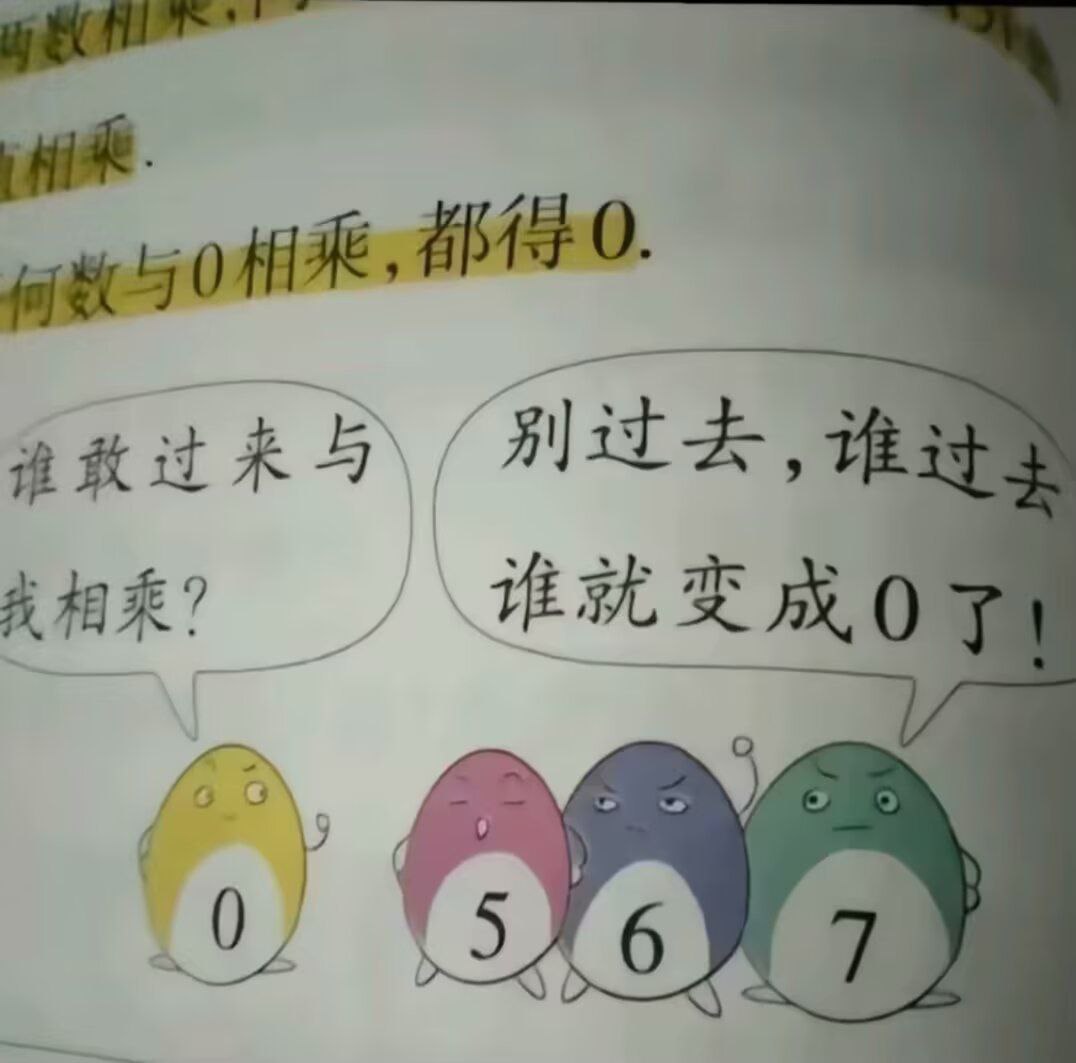 两数相乘,
相乘.
何数与0相乘,都得0.
谁敢过来与
我相乘?
别过去,谁过去
谁就变成0了!
0
5
6
7